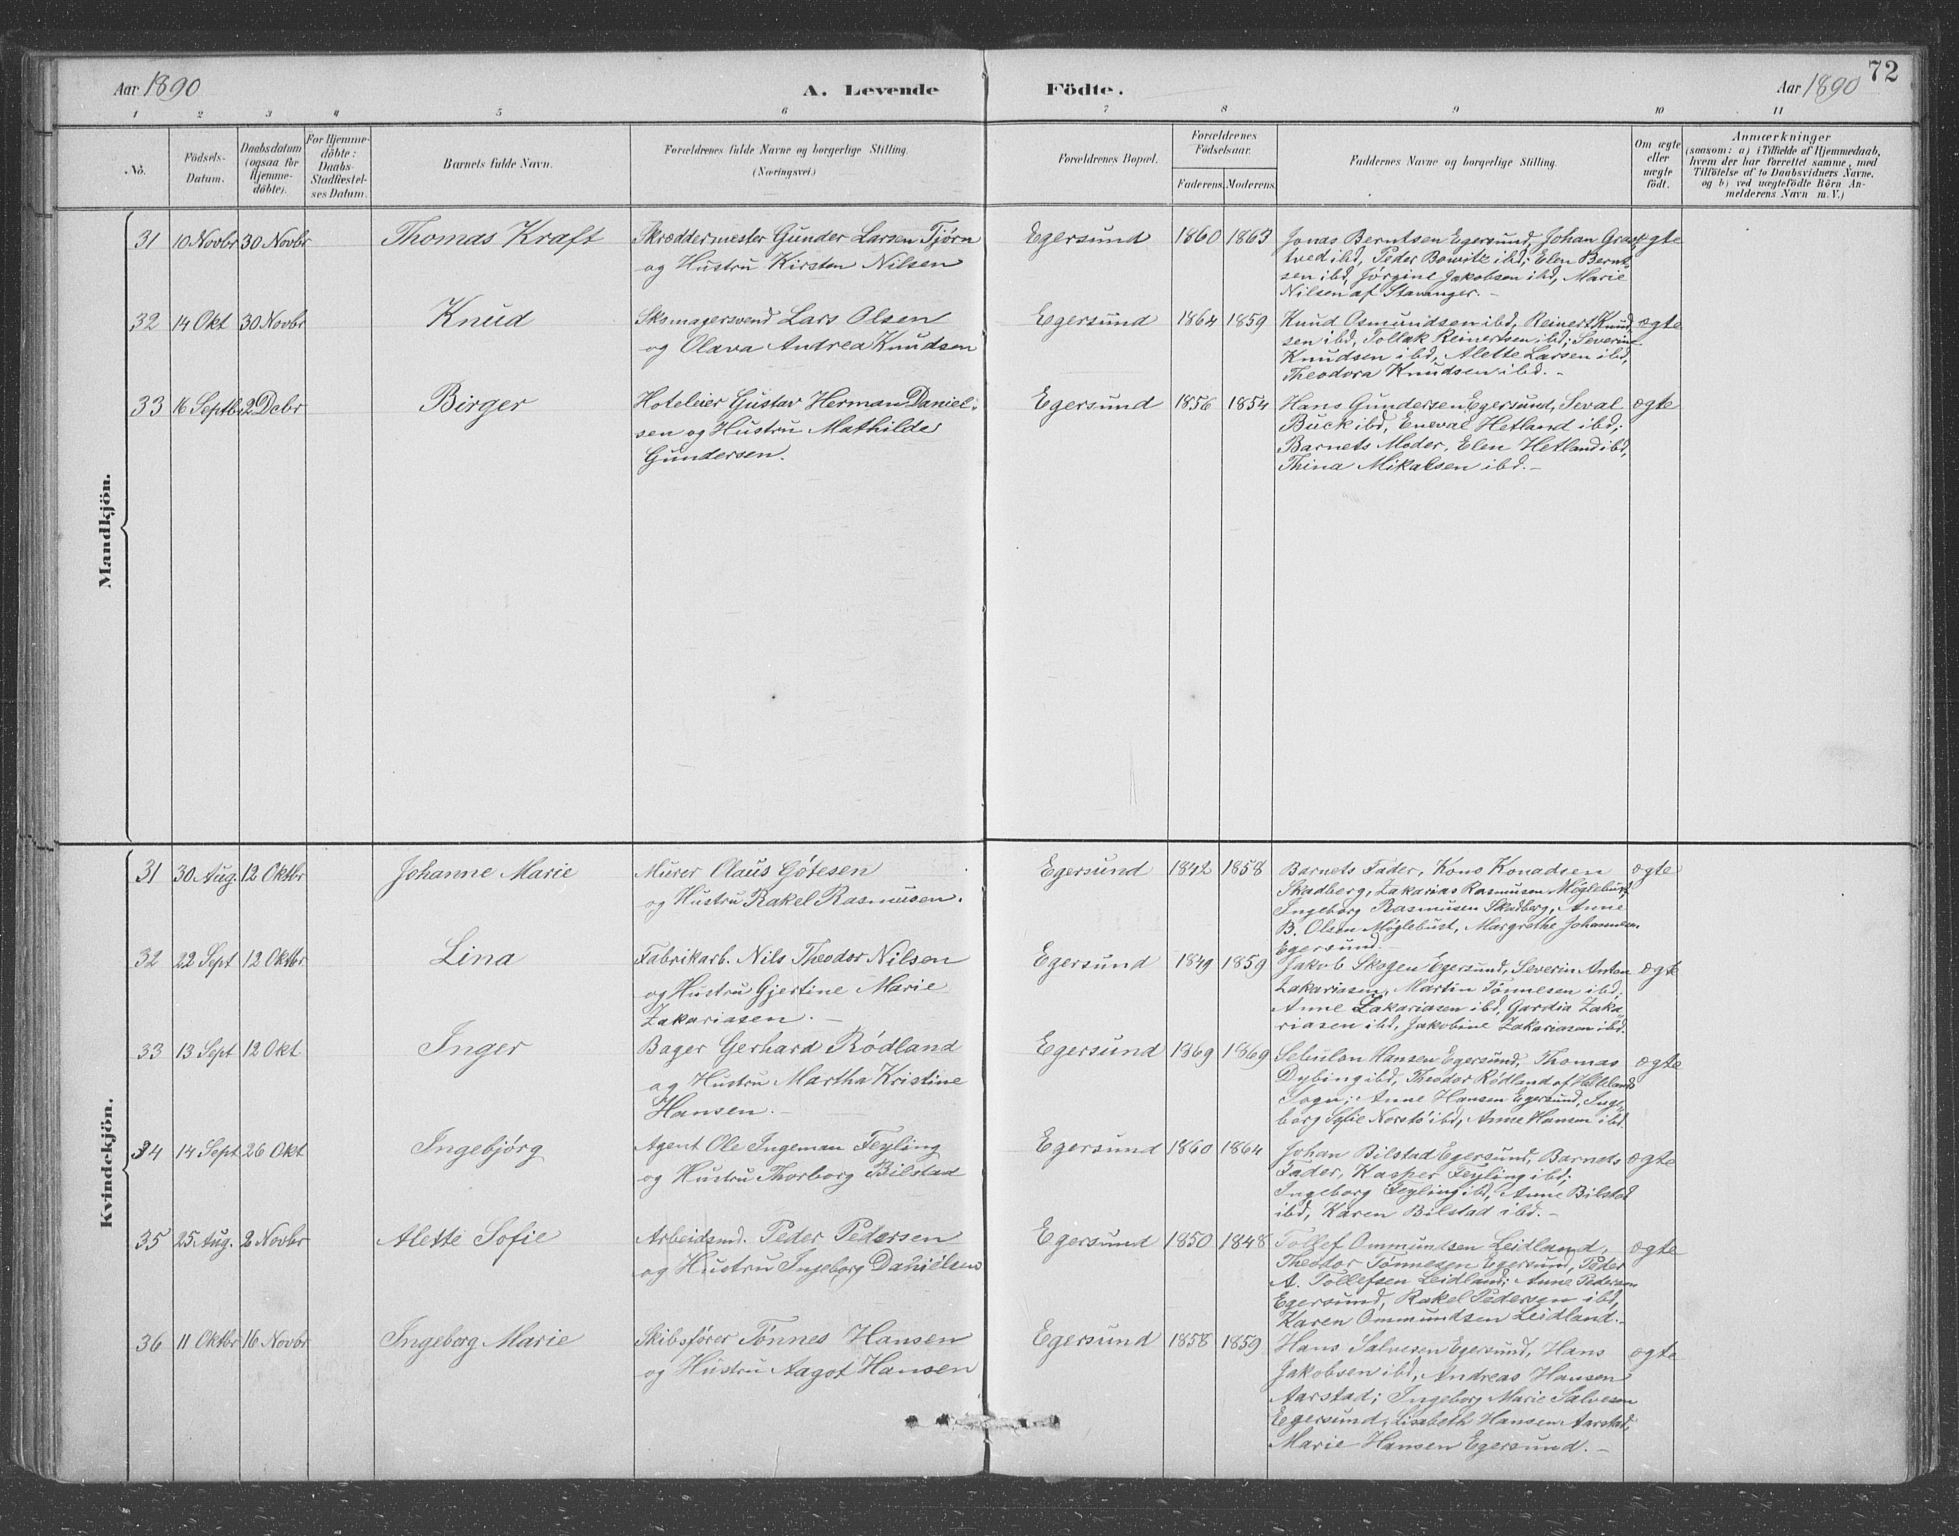 72
Aar 1890
A. Levende Födte.
Aar 1890
1 2 3 4 5 6 7 8 9 10 11
No.
Födsels-
Datum.
Daabsdatum
(ogsaa for
Hjemme-
döbte).
For Hjemme-
döbte:
Daabs-
Stadfæstel-
ses Datum.
Barnets fulde Navn.
Forældrenes fulde Navne og borgerlige Stilling.
(Næringsvei.)
Forældrenes Bopæl.
Forældrenes
Födselsaar.
Faderens. Moderens.
Faddernes Navne og borgerlige Stilling.
Om ægte
eller
uægte
födt.
Anmærkninger
(saasom: a) i Tilfælde af Hjemmedaab,
hvem der har forrettet samme, med
Tilföielse af to Daabsvidners Navne,
og b) ved uægtefödte Börn An-
melderens Navn m. V.)
Mandkjön.
31 10 Novbr 30 Novbr Thomas Kraft
Skræddermester Gunder Larsen Tjørn
og Hustru Kirsten Nilsen
Egersund 1860 1863
Jonas Berntsen Egersund, Johan Grast-
tved ibd, Peder Bowitz ibd; Elen Bernt-
sen ibd, Jørgine Jakobsen ibd, Marie
Nilsen af Stavanger.-
ægte
32 14 Okt 30 Novbr Knud
Skomagersvend Lars Olsen
og Olava Andrea Knudsen
Egersund 1864 1859
Knud Osmundsen ibd, Reinert Knud-
sen ibd, Tollak Reinertsen ibd; Severine
Knudsen ibd, Alette Larsen ibd,
Theodora Knudsen ibd.-
ægte
33 16 Septb. 2 Debr Birger
Hoteleier Gustav Herman Daniel-
sen og Hustru Mathilde
Gundersen.
Egersund 1856 1854
Hans Gundersen Egersund, Seval
Buck ibd, Eneval Hetland ibd;
Barnets Moder, Elen Hetland ibd,
Thina Mikalsen ibd.-
ægte
Kvindekjön.
31 30 Aug. 12 Oktbr Johanne Marie
Murer Olaus Gøtesen
og Hustru Rakel Rasmusen.
Egersund 1842 1858
Barnets Fader, Kons Konadsen
Skadberg, Zakarias Rasmusen Møglebust,
Ingeborg Rasmusen Skadberg, Anne
B. Olsen Møglebust, Margrethe Johannesen
Egersund.-
ægte
32 22 Sept 12 Oktbr Lina
Fabrikarb. Nils Theodor Nilsen
og Hustru Gjertine Marie
Zakariasen.-
Egersund 1849 1859
Jakob Skogen Egersund, Severin Anton
Zakariasen, Martin Tønnesen ibd;
Anne Zakariasen ibd, Gardia Zaka-
riasen ibd, Jakobine Zakariasen ibd.
ægte
33 13 Sept 12 Okt Inger
Bager Gerhard Rødland
og Hustru Martha Kristine
Hansen.-
Egersund 1869 1869
Sebulon Hansen Egersund, Thomas
Dybing ibd, Theodor Rødland af Hellelands
Sogn; Anne Hansen Egersund, Inge-
borg Sofie Norstø ibd, Anne Hansen ibd.
ægte
34 14 Sept 26 Okt Ingebjørg
Agent Ole Ingeman Feyling
og Hustru Thorborg Bilstad
Egersund 1860 1864
Johan Bilstad Egersund, Barnets
Fader, Kasper Feyling ibd;
Ingeborg Feyling ibd, Anne Bilstad
ibd, Karen Bilstad ibd.-
ægte
35 25 Aug. 2 Novbr Alette Sofie
Arbeidsmd. Peder Pedersen
og Hustru Ingeborg Danielsen
Egersund 1850 1848
Tollef Ommundsen Leidland,
Theodor Tønnesen Egersund, Peder
A. Tollefsen Leidland; Anne Pedersen
Egersund, Rakel Pedersen ibd,
Karen Ommundsen Leidland.-
ægte
36 11 Oktbr 16 Novbr Ingeborg Marie
Skibsfører Tønnes Hansen
og Hustru Aagot Hansen
Egersund 1858 1859
Hans Salvesen Egersund, Hans
Jakobsen ibd, Andreas Hansen
Aarstad; Ingeborg Marie Salvesen
Egersund, Lisabeth Hansen Aarstad,
Marie Hansen Egersund.-
ægte